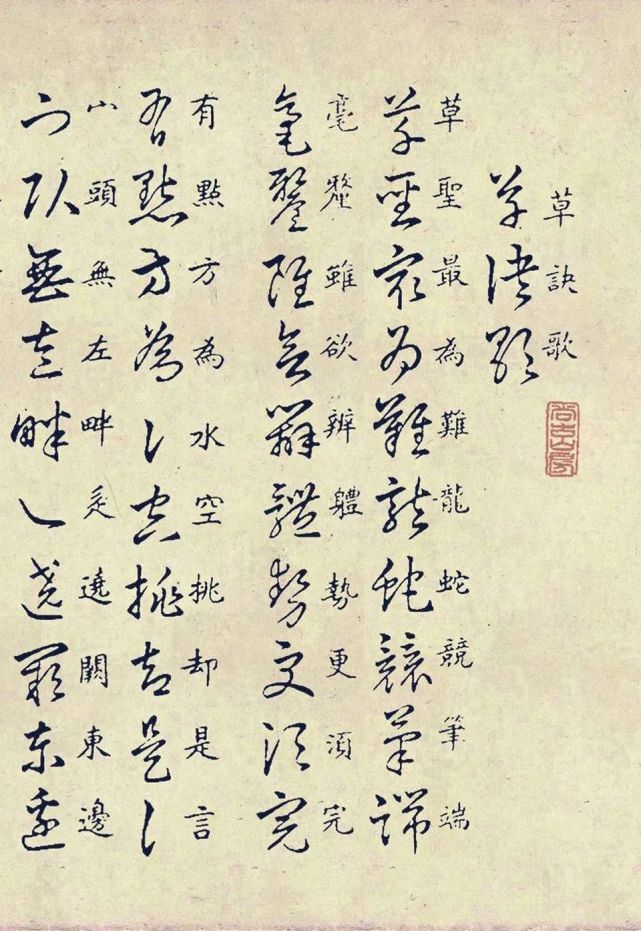 草訣歌
草訣歌
草聖最為難龍蛇競筆端
草聖最為難龍蛇競筆端
毫釐雖欲辨體勢更須完
毫釐雖欲辨體勢更須完
有點方為水空挑却是言
有點方為水空挑却是言
宀頭無左畔辵遶闕東邊
宀頭無左畔辵遶闕東邊